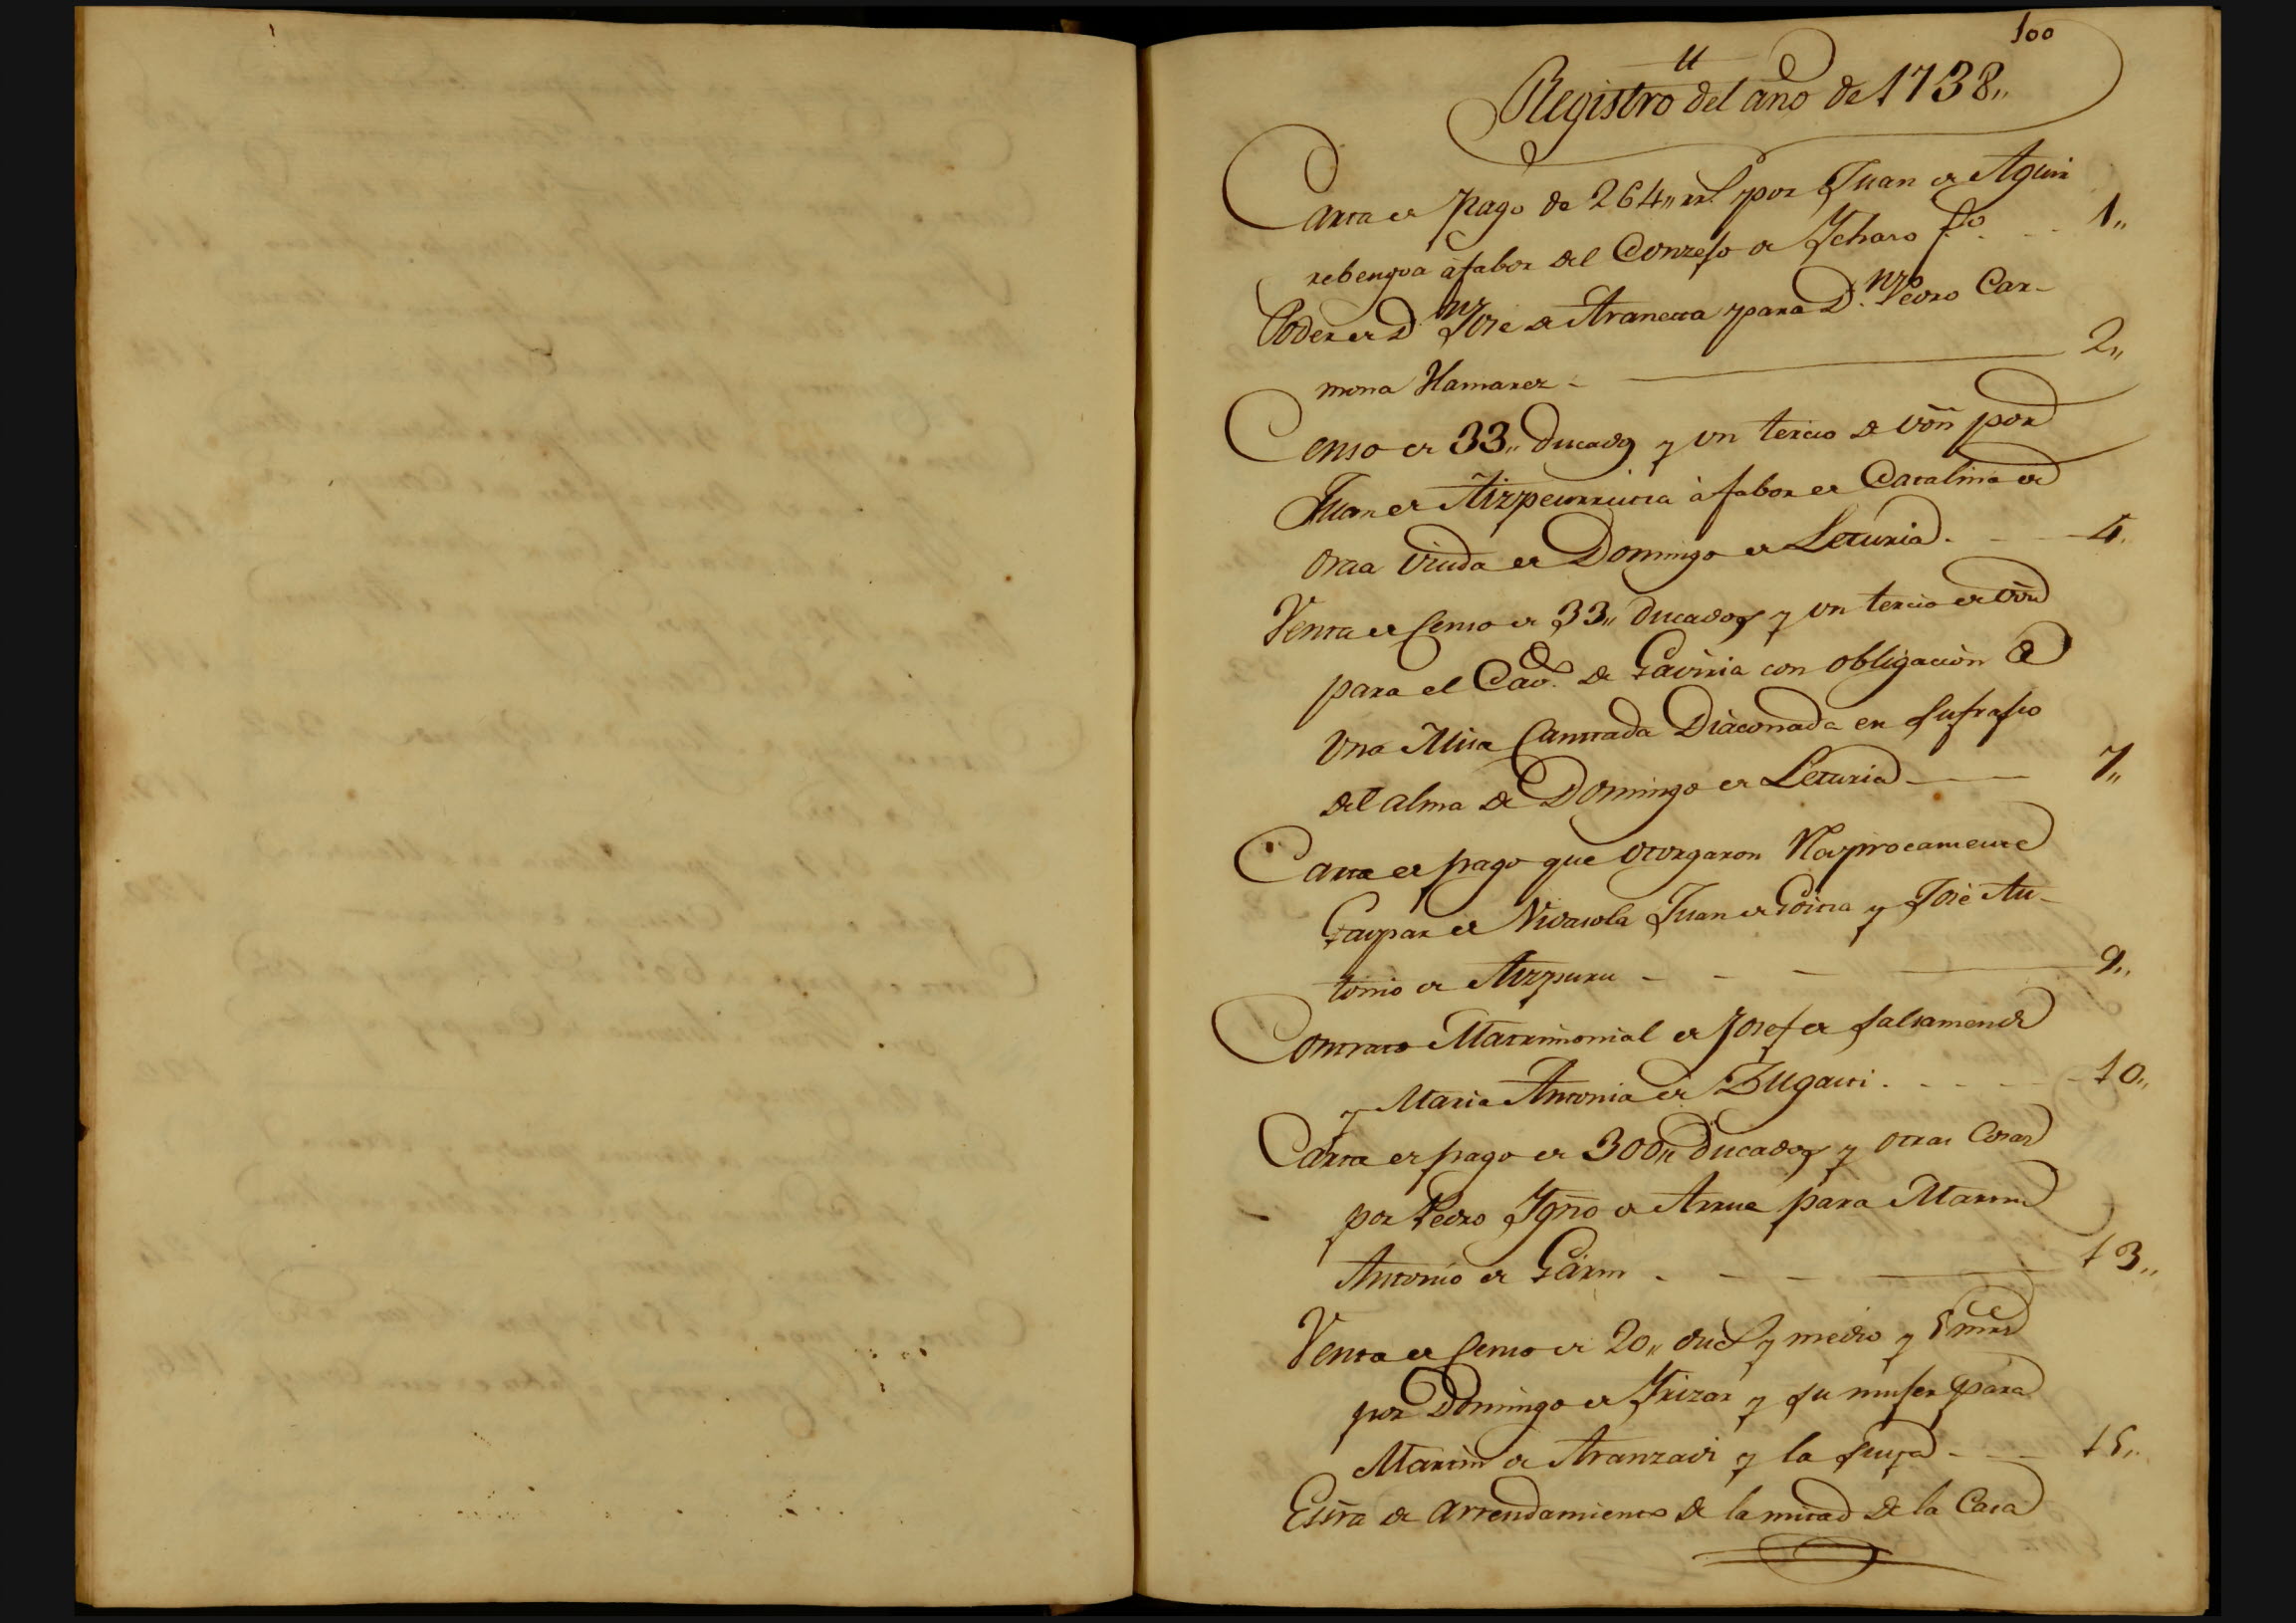 100
11
Registro del año de 1738,,
Carta de Pago de 264,, rr.s por Juan de Aguir
rebengoa à fabor del Conzejo de Ycharo fo - - 1,,
Poder de Dn Jose de Araneta para Dn Pedro Car-
mona Hamarez - 2,,
Censo de 33,, Ducados y vn tercio de von por
Juan de Aizpeurrutia à fabor de Catalina de
Oraa Viuda de Domingo de Leturia. - - 4,,
Venta de Censo de 33,, Ducados y vn tercio de von
para el Cavdo. de Gaviria con obligaciòn de
Vna Misa Cantada Diàconada en sufrajio
del alma de Domingo de Leturia - 7,,
Carta de pago que Otorgaron Reciprocamente
Gaspar de Juan de Goitia y Josè An-
tonio de Aizpuru - - - 9,,
Contrato Matrimonial de Josef de Salsamendi
y Maria Antonia de Zugasti. - - - - 10,,
Carta de pago de 300,, Ducados y otras Cosas
por Pedro Ygño de Arrue para Martin
Antonio de Garin - - - - 13,,
Venta de Censo de 20,, ducs y medio y 5 mrs
por Domingo de Yrizar y su mujer para
Martin de Aranzadi y la suya - - - 15,,
Essra de Arrendamiento de la mitad de la Casa